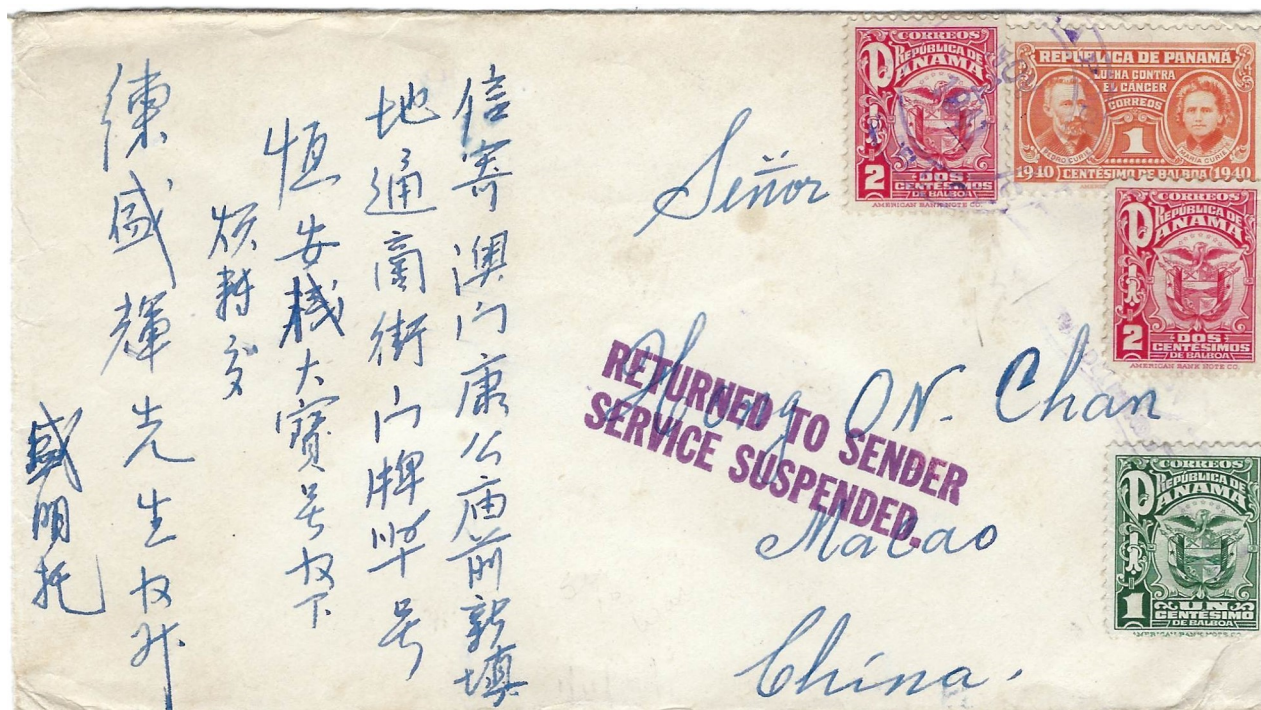 信寄澳门康公庙前新填
地通商街门牌号
恒安棧大寶号收下
烦轉交
盛輝先生收升
盛明托
Señor
ON. Chan
Macao
China.
RETURNED TO SENDER
SERVICE SUSPENDED.
CORREOS
REPÚBLICA DE
PANAMA
2
DOS
CENTÉSIMOS
DE BALBOA
AMERICAN BANK NOTE CO.
REPÚBLICA DE PANAMÁ
LUCHA CONTRA
EL CÁNCER
CORREOS
1
PEDRO CURIE
MARIA CURIE
1940 CENTÉSIMO DE BALBOA 1940
CORREOS
REPÚBLICA DE
PANAMA
2
DOS
CENTÉSIMOS
DE BALBOA
AMERICAN BANK NOTE CO.
CORREOS
REPÚBLICA DE
PANAMA
1
UN
CENTÉSIMO
DE BALBOA
AMERICAN BANK NOTE CO.